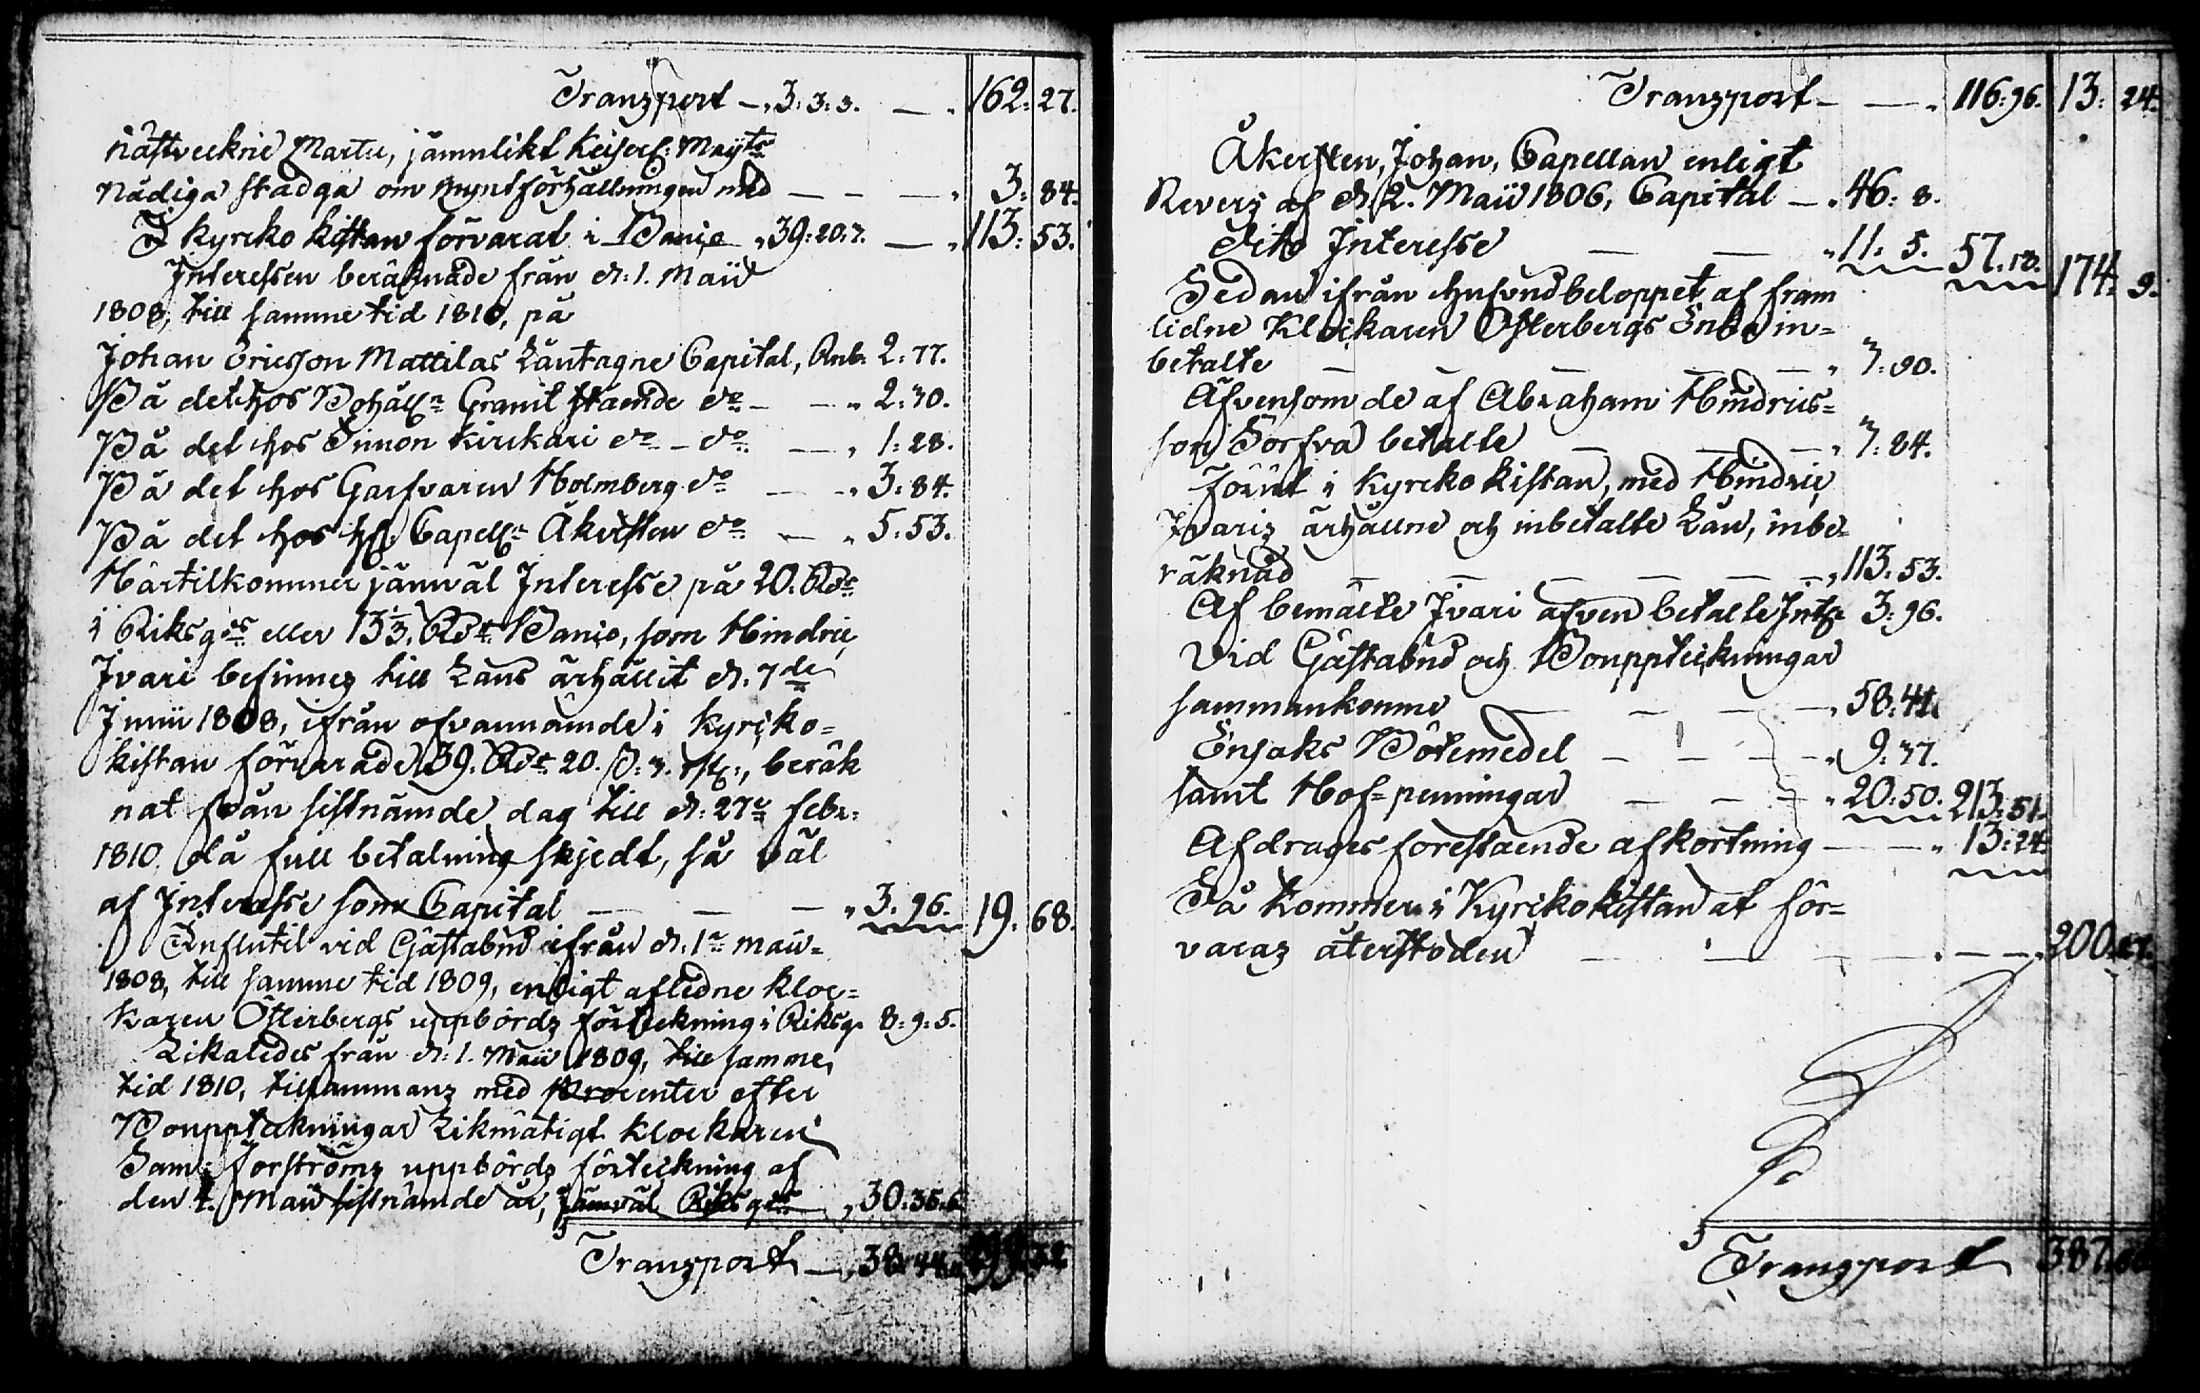 Transport — 3: 3: 3. — 162: 27.
nästvecknè Martii, jämnlikt Keiserl: Mayts
Nådiga stadga om myntförhållningen med — — — 3: 84.
I kyrcko kistan förvarat i Banco 39: 20: 7. — 113: 53.
Interessen beräknade från d: 1. Maii
1808, till samme tid 1810, på
Johan Ericsson Mattilas Låntagne Capital, Rub. 2: 77.
På det hos Bohålln Granit stående do — — 2: 30.
På det hos Simon Kirckari do — do — 1: 28.
På det hos Garfvaren Holmberg do — — 3: 84.
På det hos hr Capelln Åkersten do — — 5: 53.
Härtilkommer jämväl Interesse på 20. Rdr
i Riksgs eller 13 1/3. Rdr Banco, som Hindric
Ivari befinnes till Låns ärhållit d. 7de
Junii 1808, ifrån ofvannämde i Kyrcko-
kistan förvarade 39. Rdr 20. s: 7. rst:, beräk
nat från sistnämde dag till d: 27e Febr:
1810, då full betalning skjedt, så väl
af Interesse som Capital — — — 3. 96. 19. 68.
Influtit vid Gästabud ifrån d: 1e maii
1808, till samme tid 1809, enligt afledne Kloc-
karen Österbergs uppbörds förteckning i Riksg. 8: 9: 5.
Likaledes från d: 1. Maii 1809, till samme
tid 1810, tillsammans med Procenter efter
Bouppteckningar Likmätigt klockaren
Sam: Forströms uppbörds förteckning af
den 4. Maii sistnämde år, Jämväl Riksgs — 30: 35: 6.
Transport — 38: 44.
Transport — — 116: 96. 13: 24.
Åkersten, Johan, Capellan enligt
Revers af d. 2. Maii 1806, Capital — 46: 8.
Dito Interesse — — 11. 5. 57. 13. 174. 9.
Sedan ifrån hufvudbeloppet af fram
lidne Klockaren Österbergs Enka in-
betalte — — — 7: 90.
Äfvensom de af Abraham Hindrics-
son Sorfva betalte — — — 7: 84.
Förut i Kyrcko kistan, med Hindric
Ivaris ärhållne och inbetalte Lån, inbe-
räknad — — — — — 113: 53.
Af bemälte Ivari äfven betalte Intr. 3: 96.
Vid Gästabud och Bouppteckningar
sammankomne — — — 58: 41.
Ensaks Bötemedel — — — 9: 37.
samt Hof-penningar — — — 20: 50. 213: 51.
Afdrages förestående afkortning — — 13: 24.
Så kommer i Kyrckokistan at för-
varas återstoden — — — 200: 27.
Transport 387: